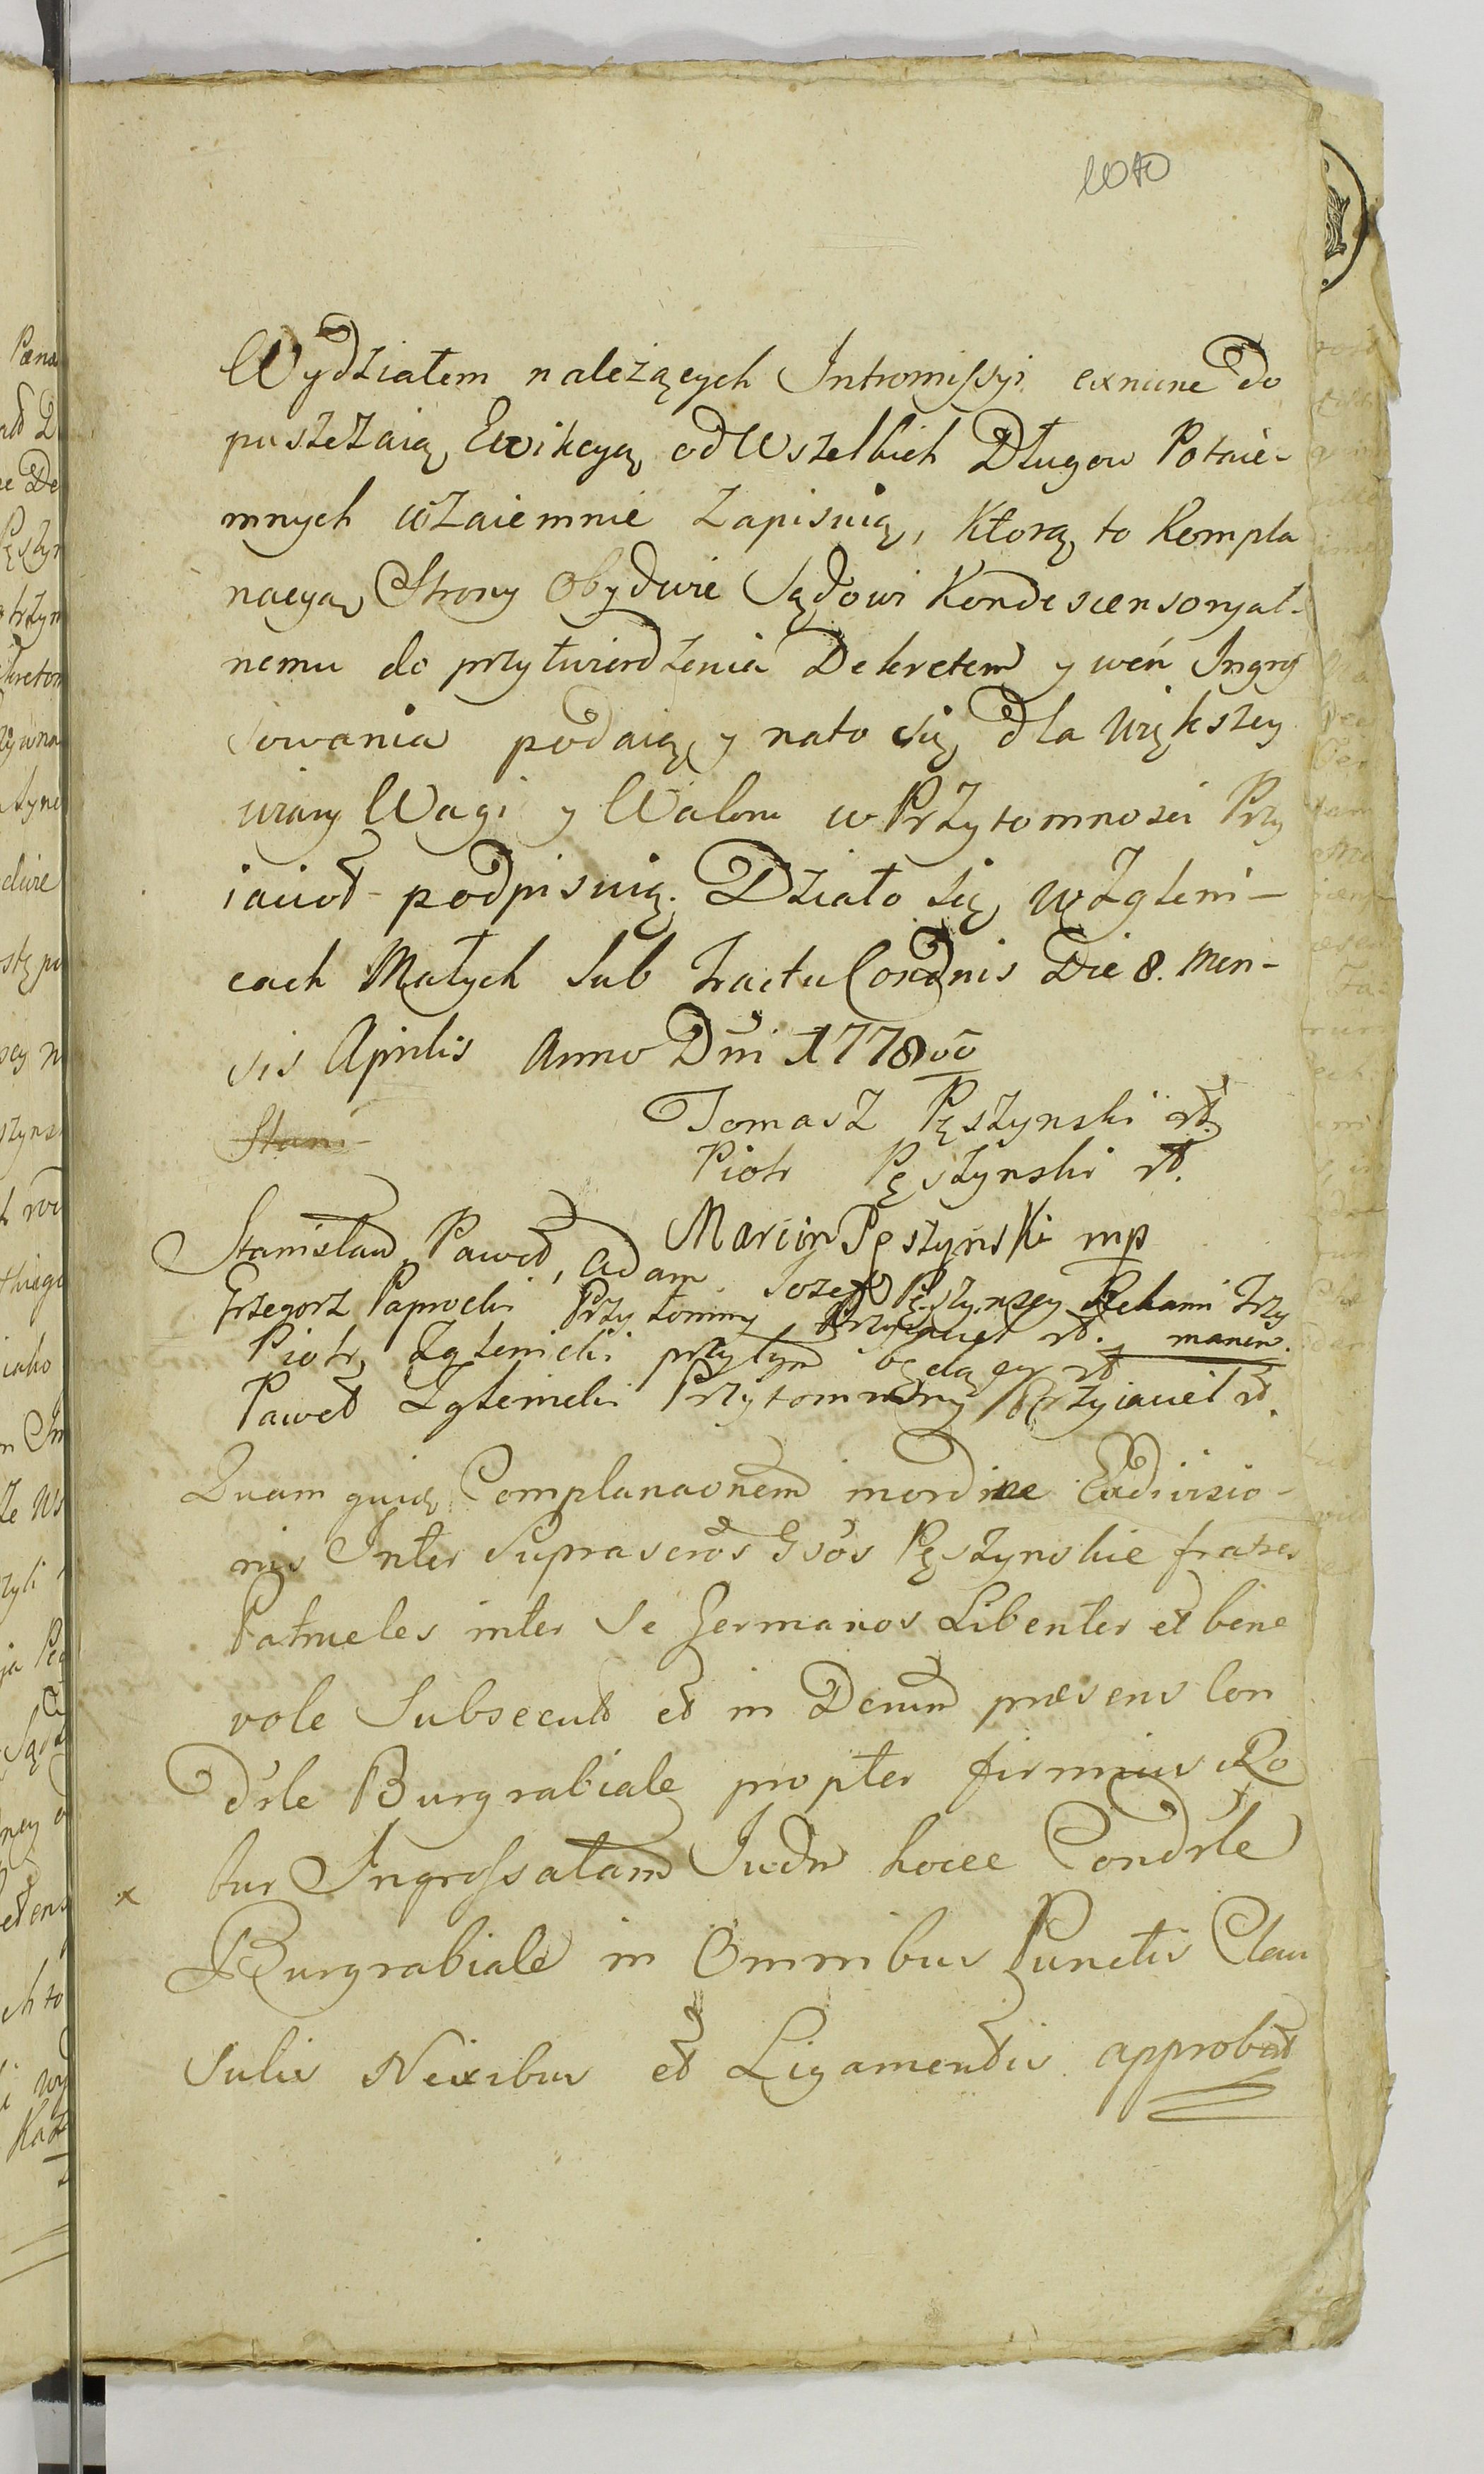 Wydziałem należących Intromissyi exnunc do
puszczaią Ewikcyą od Wszelkich Długow Potaie-
mnych wzaiemnie zapisuią, Ktorą to Kompla
nacyą Strony Obydwie Sądowi Kondescensoryal-
nemu do przytwierdzenia Dekretem y weń Ingros
sowania podaią y nato się dla większey
wiary Wagi y Waloru w Przytomnosci Przy
iacioł podpisuią. Działo się w Zgleni-
cach Małych Sub Tractu Condnis Die 8. Men-
sis Aprilis Anno Dni 1778vo
Stani
Tomasz Pęszynski rd
Piotr Pęszynski rd.
Marcin Pęszynski mp
Stanisław, Paweł, Adam Jozef Pęszynscy Rękami trzy
manem.
Grzegorz Paprocki Przytomny Przyiaciel rd.
Piotr Zglenicki przytym będący rd
Paweł Zglenicki Przytommny Przyiaciel rd.
Quam quidę Complanaonem inordine Exdivisio-
nis Inter Suprascros Gsos Pęszynskie fratres
Patrueles inter Se Germanos Libenter et bene
vole Subsecut et in Derum præsens Con
drle Burgrabiale propter firmius Ro
bur Ingrossatam Judm hocce Condrle
Burgrabiale in Omnibus Punctis Clau
sulis Nexibus et Ligamentis approbat